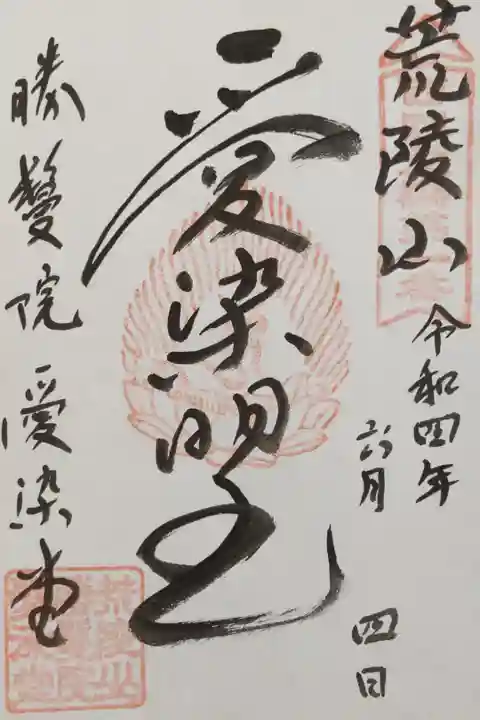 荒陵山
令和四年
六月
四日
愛染明王
勝鬘院愛染堂